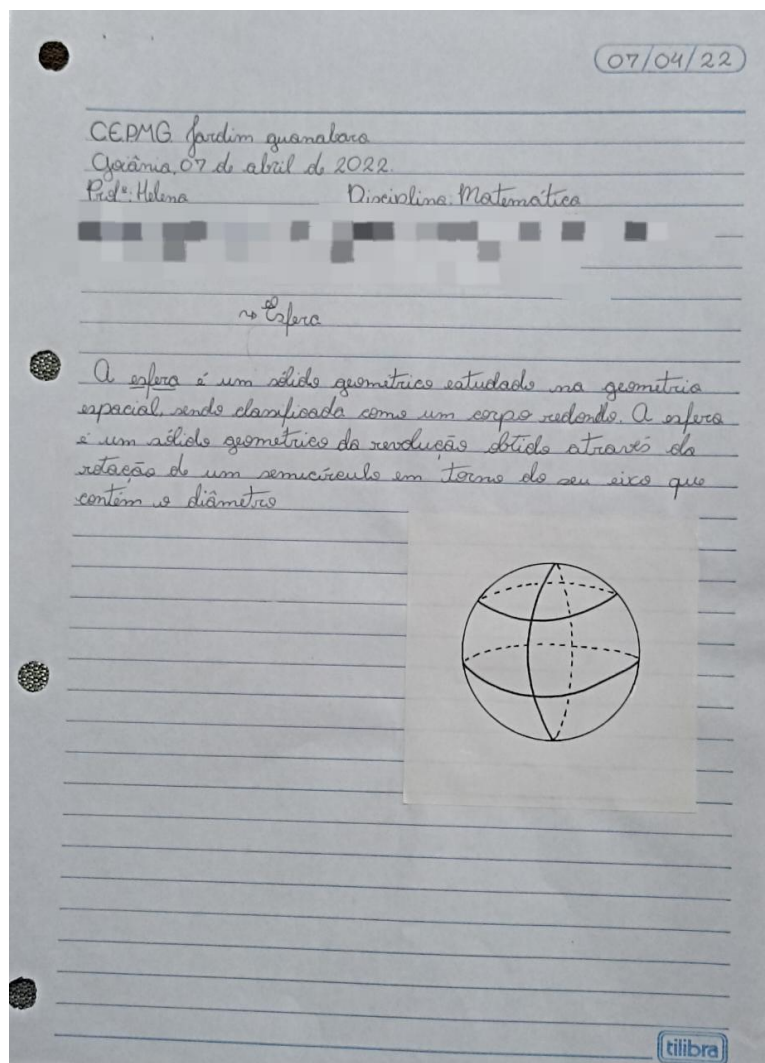 07/04/22
CEPMG Jardim guanabara
Goiânia, 07 de abril de 2022.
Profª: Helena Disciplina: Matemática
→ Esfera
A esfera é um sólido geométrico estudado na geometria
espacial, sendo classificada como um corpo redondo. A esfera
é um sólido geométrico da revolução obtido através da
rotação de um semicírculo em torno do seu eixo que
contém o diâmetro
tilibra